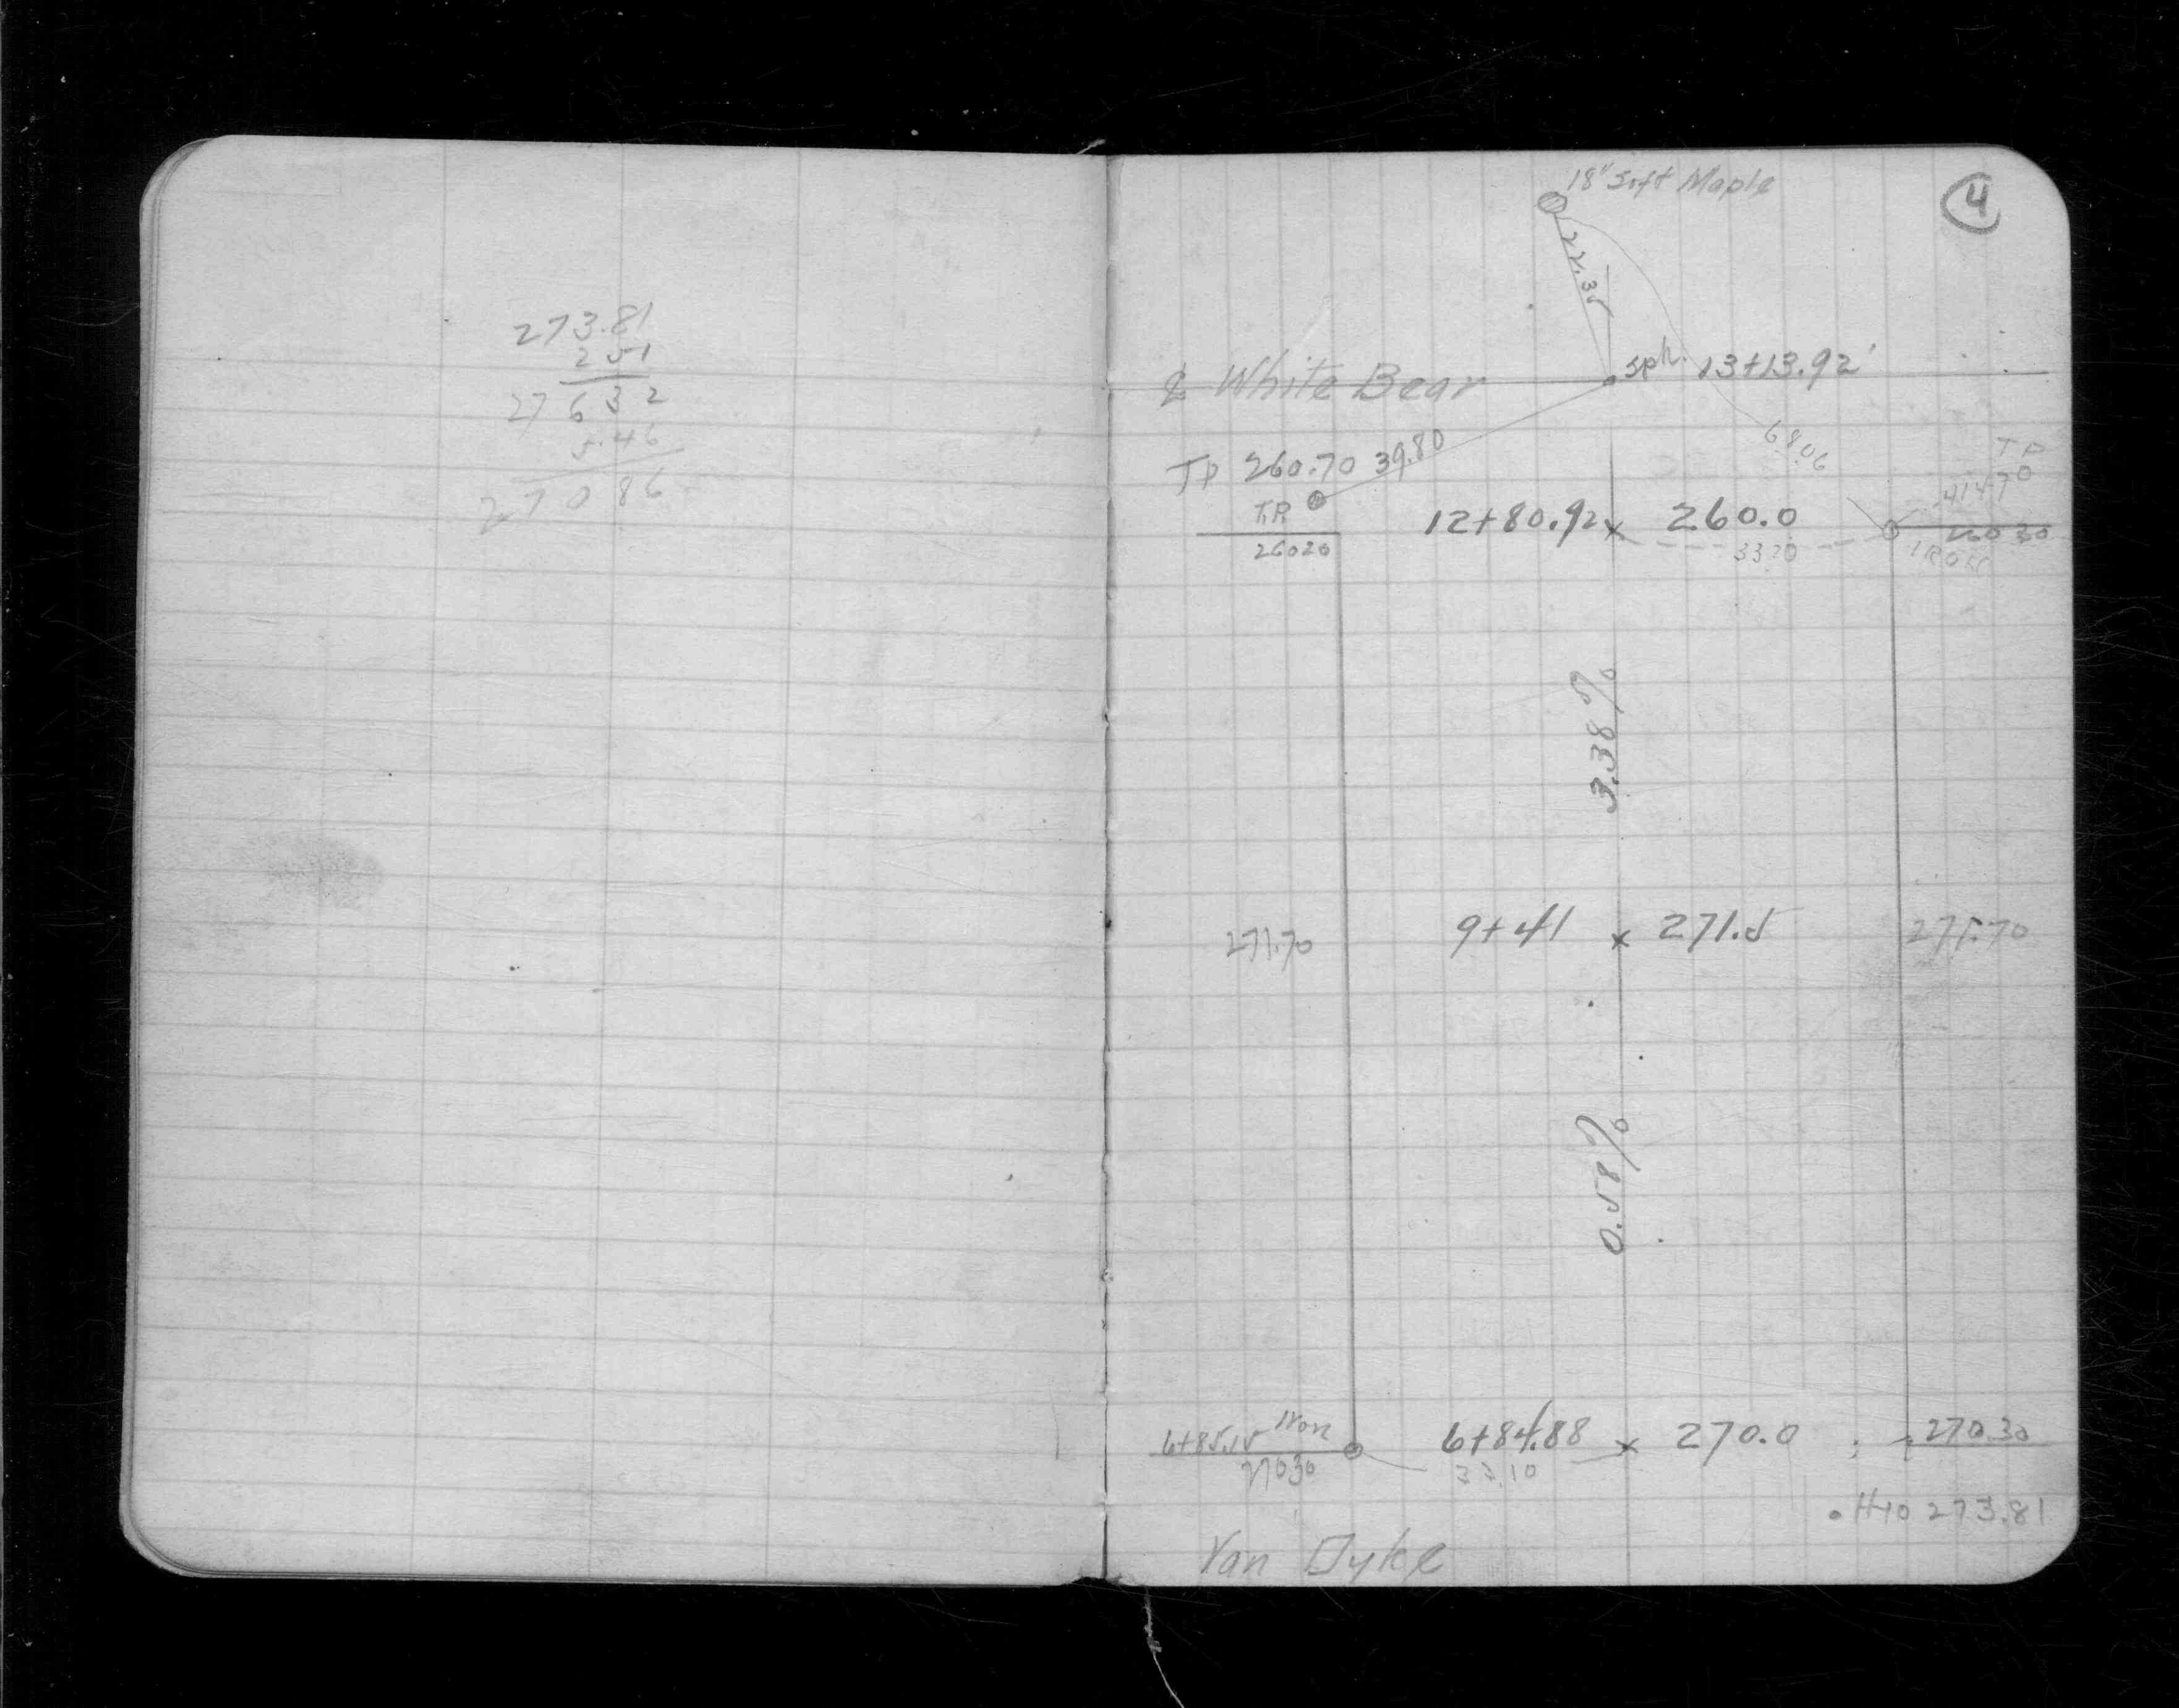 273.81
251
27 6 3 2
5.46
27 0 86
4
18" Soft Maple
22.35
℄ White Bear
spk. 13+13.92'
68.06
TP 260.70 39.80
TP
T.P.
12+80.92 x 260.0
260 30
26020
33.20
IRON
3.38%
271.70
9+41 x 271.5
271.70
0.58%
6+85.15 Iron
6+84.88 x 270.0
270.30
27030
33.10
Hyd 273.81
Van Dyke